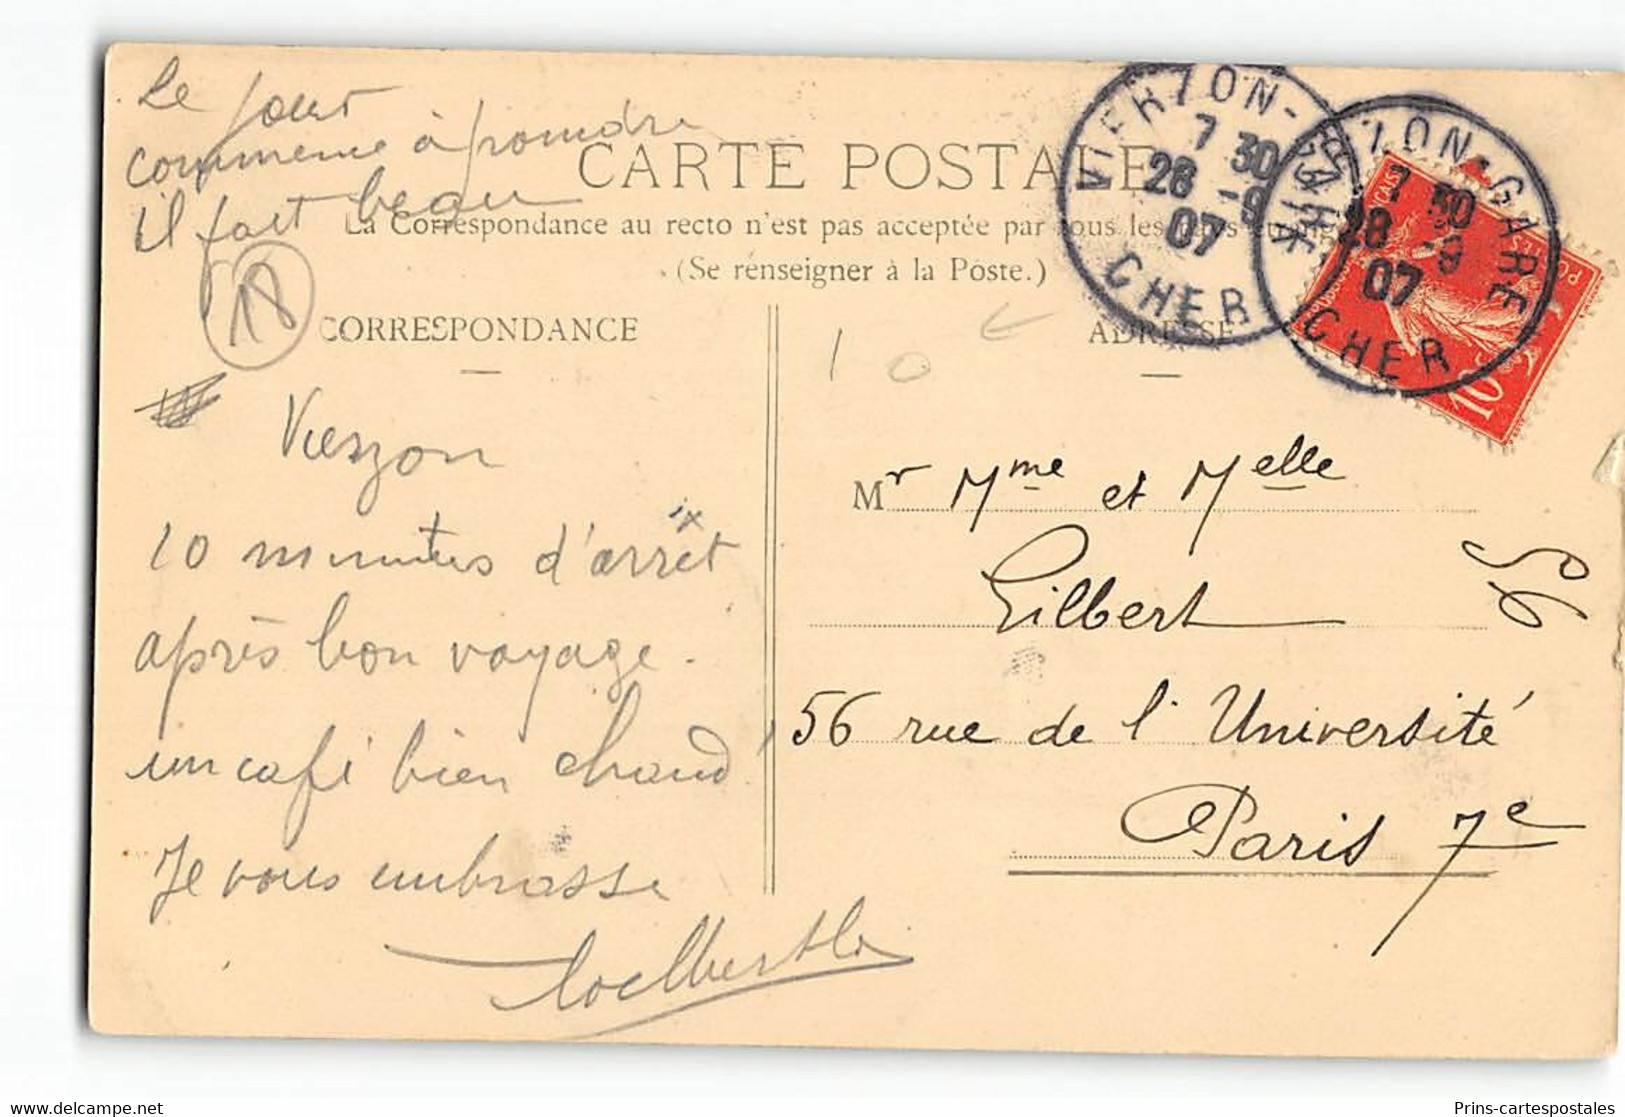 Le jour
commence à poindre
il fait beau
18
CARTE POSTALE
La Correspondance au recto n'est pas acceptée par tous les pays
(Se renseigner à la Poste.)
CORRESPONDANCE
ADRESSE
VIERZON-GARE
7 30
28 -9
07
CHER
VIERZON-GARE
7 30
28 -9
07
CHER
10
10
Vierzon
10 minutes d'arrêt
après bon voyage.
un café bien chaud!
Je vous embrasse
Mr Mme et Melle
Gilbert
56
56 rue de l'Université
Paris 7e
Prins-cartespostales